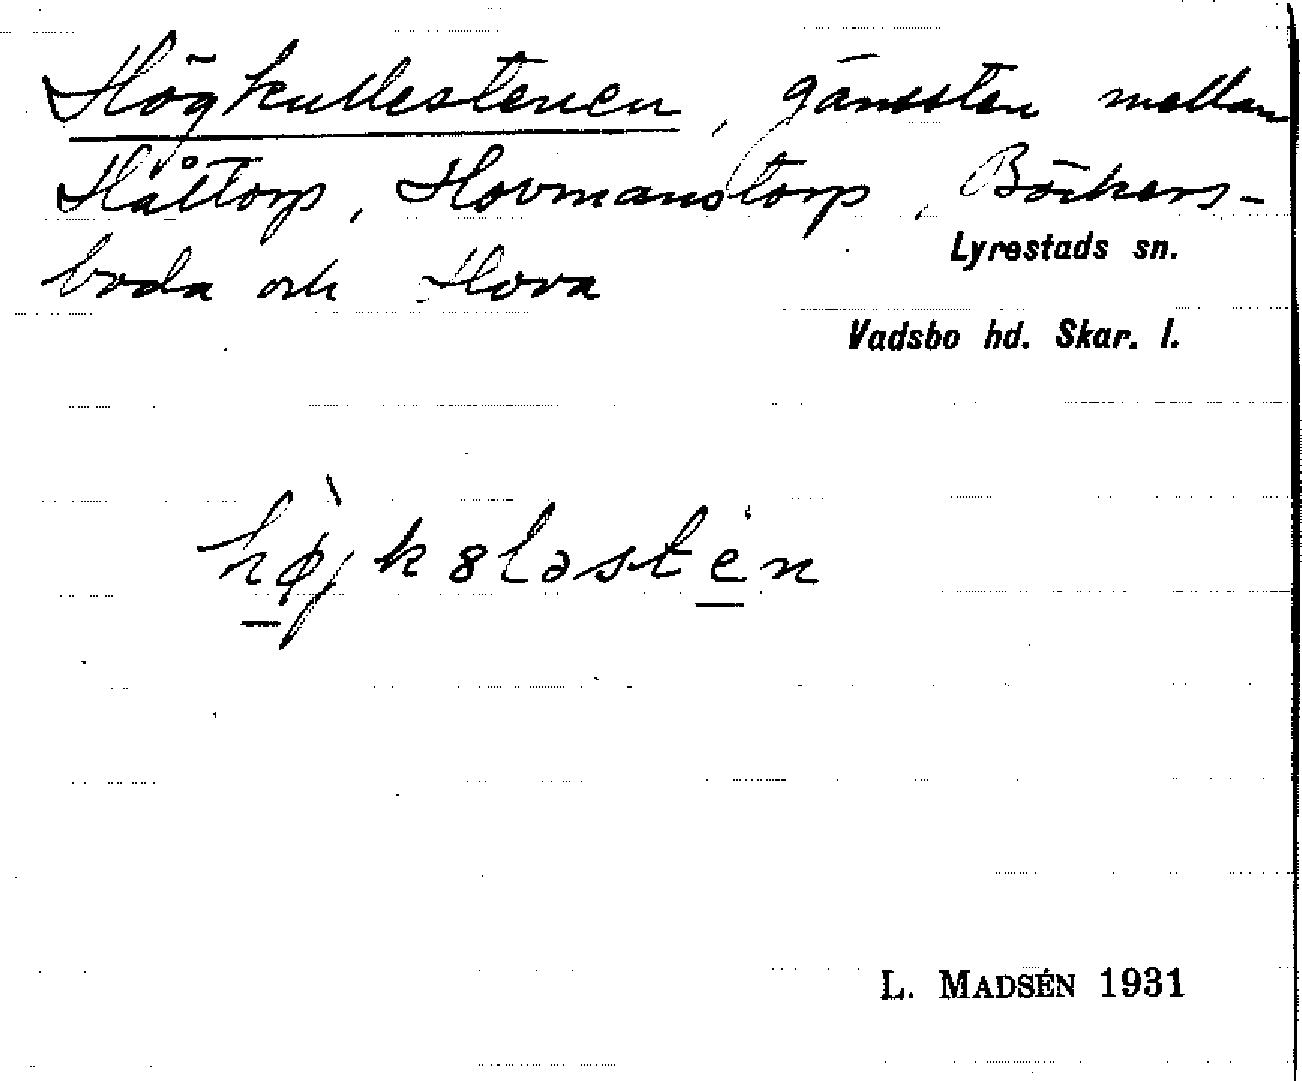 Högkullestenen, gränssten mellan
Håltorp, Hovmanstorp, Böckers-
boda och Hova
Lyrestads sn.
Vadsbo hd. Skar. l.
hø̀jk8ləstén
L. MADSÉN 1931